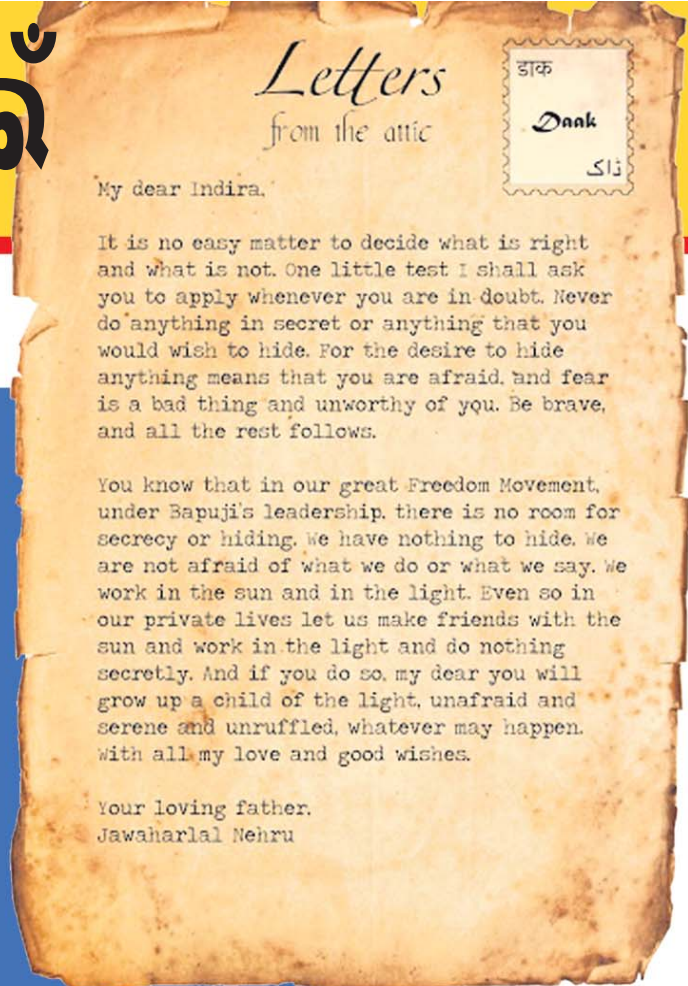 Letters
from the attic
डाक
Daak
ڈاک
My dear Indira,
It is no easy matter to decide what is right
and what is not. One little test I shall ask
you to apply whenever you are in doubt. Never
do anything in secret or anything that you
would wish to hide. For the desire to hide
anything means that you are afraid, and fear
is a bad thing and unworthy of you. Be brave,
and all the rest follows.
You know that in our great Freedom Movement,
under Bapuji's leadership, there is no room for
secrecy or hiding. We have nothing to hide. We
are not afraid of what we do or what we say. We
work in the sun and in the light. Even so in
our private lives let us make friends with the
sun and work in the light and do nothing
secretly. And if you do so, my dear you will
grow up a child of the light, unafraid and
serene and unruffled, whatever may happen.
With all my love and good wishes.
Your loving father,
Jawaharlal Nehru